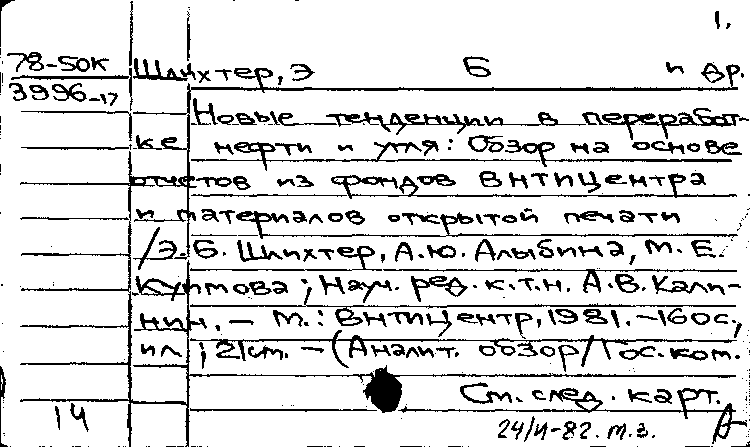 1.
78-50К Шлихтер, Э Б и др.
3996-17
Новые тенденции в переработ-
ке нефти и угля: Обзор на основе
отчетов из фондов ВНТИЦентра
и материалов открытой печати
/Э.Б. Шлихтер, А.Ю. Алыбина, М.Е.
Куимова; Науч. ред. к.т.н. А.В. Кали-
нин. – М.: ВНТИЦентр, 1981. – 160с.,
ил; 21см. – (Аналит. обзор/Гос. ком.
См. след. карт.
14 24/II-82. т.з.